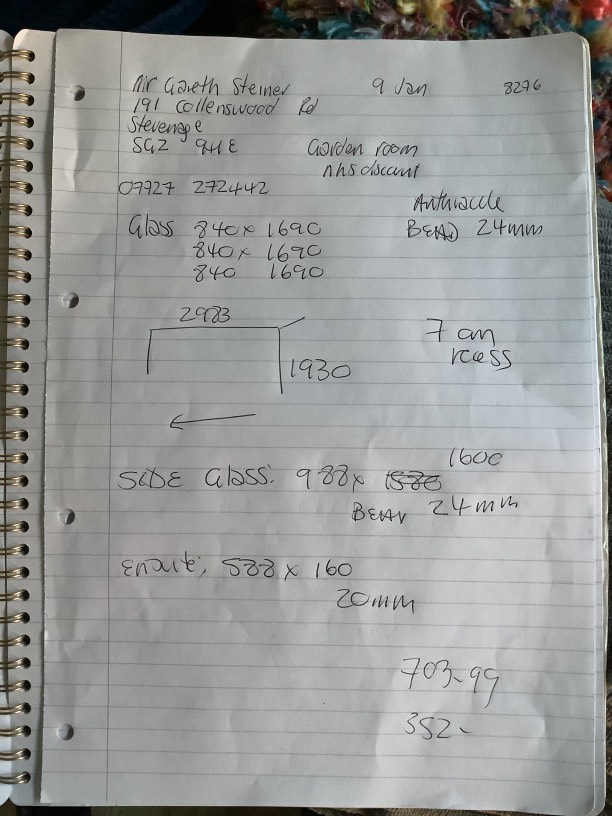 Mr Gareth Steiner 9 Jan 8276
191 Collenswood Rd
Stevenage
SG2 9HE Garden room
nhs discount
07727 272442
Anthracite
Glass 840 x 1690 BEAD 24mm
840 x 1690
840 1690
2983
7 am
rcess
1930
1600
SIDE Glass: 988 x 1580
BEAD 24mm
Ensuite: 588 x 160
20mm
703-99
352-